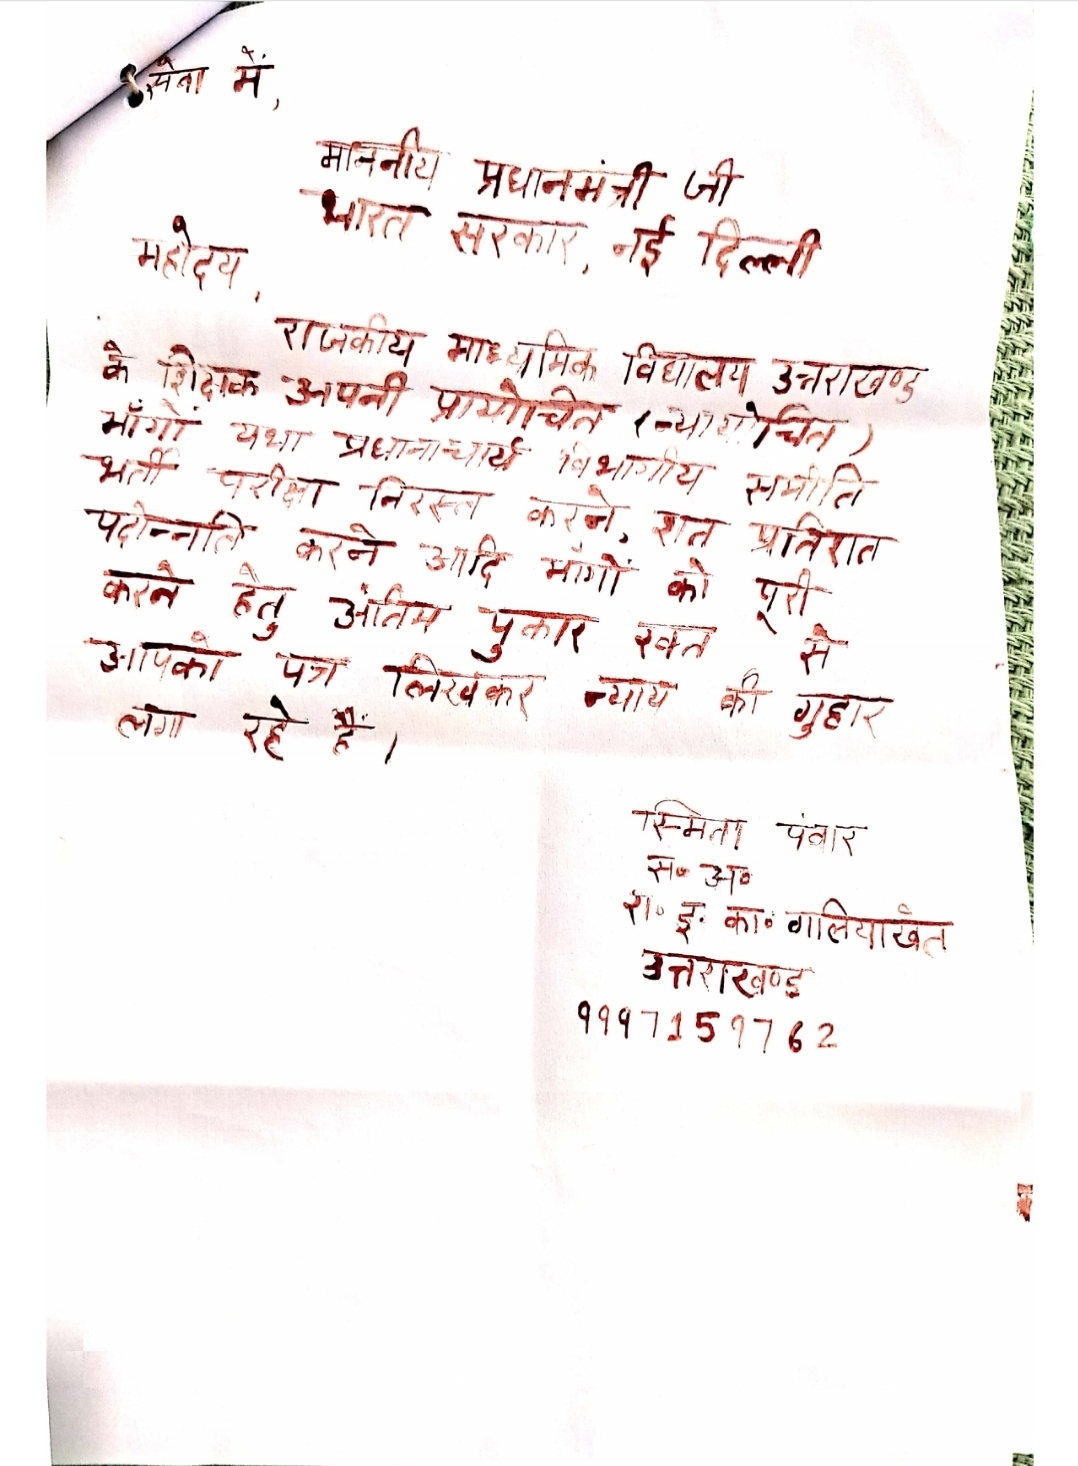 सेवा में,
माननीय प्रधानमंत्री जी
भारत सरकार, नई दिल्ली
महोदय,
राजकीय माध्यमिक विद्यालय उत्तराखण्ड
के शिक्षक अपनी प्रायोचित (न्यायोचित)
माँगों यथा प्रधानाचार्य विभागीय समीति
भर्ती परीक्षा निरस्त करने, शत प्रतिशत
पदोन्नति करने आदि माँगों को पूरी
करने हेतु अंतिम पुकार रक्त से
आपको पत्र लिखकर न्याय की गुहार
लगा रहे हैं।
स्मिता पंवार
स॰ अ॰
रा॰ इ॰ का॰ गलियाखेत
उत्तराखण्ड
9997159762